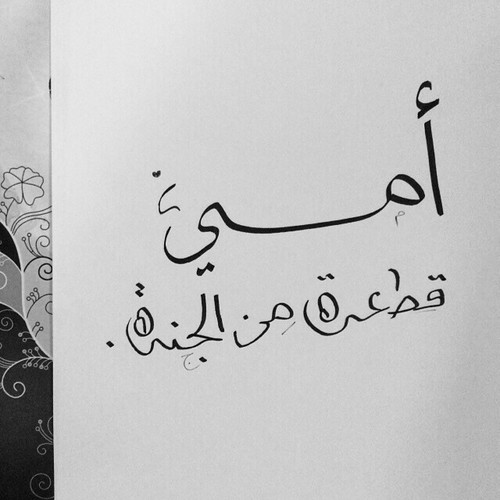 أمي
قطعة من الجنة.